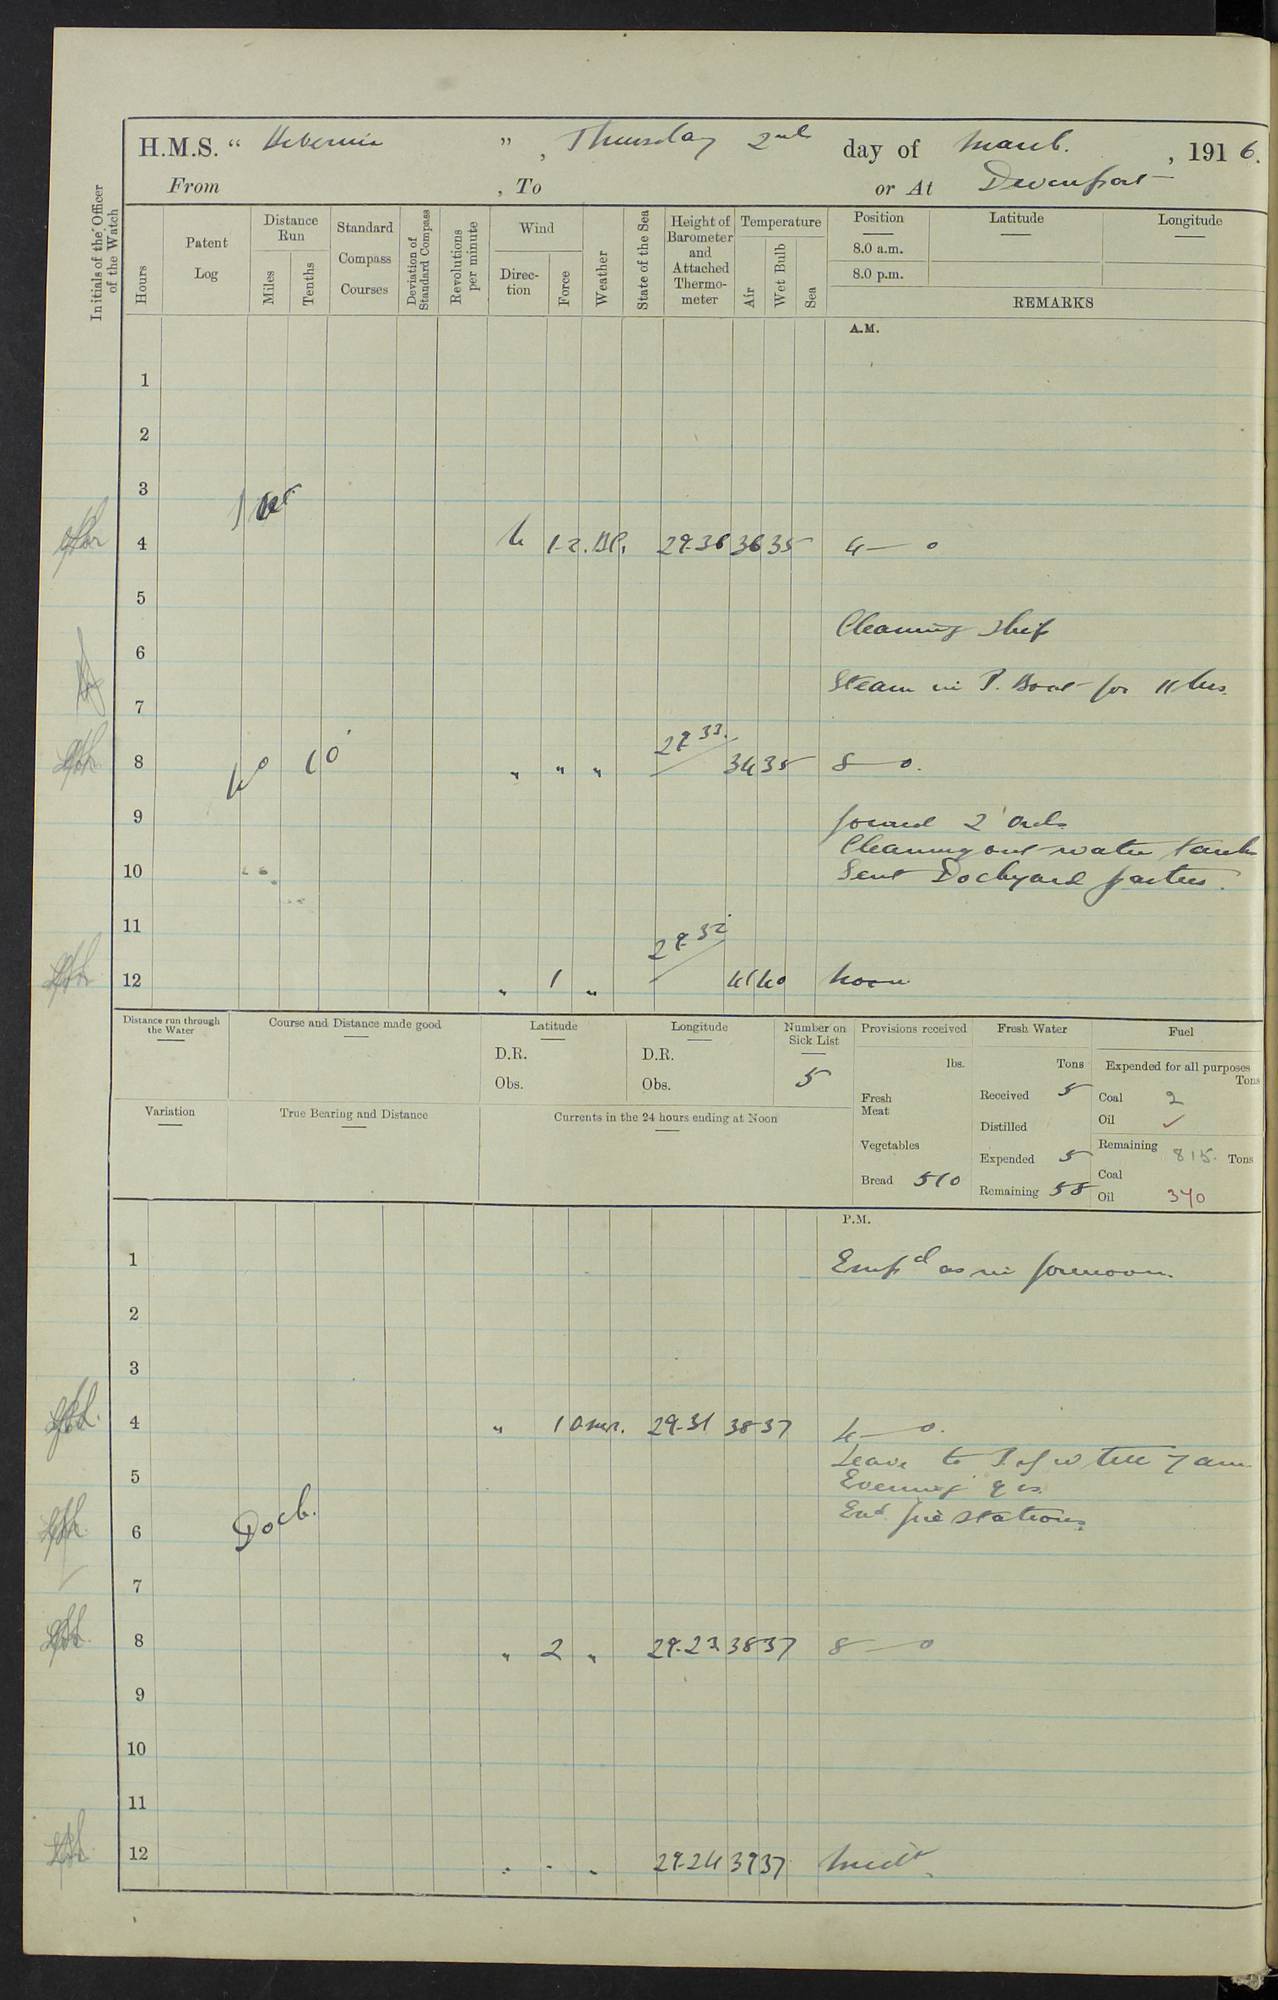 H.M.S. “ Hibernia ” , Thursday 2nd day of March. , 1916.
From , To or At Devonport
Initials of the Officer of the Watch
Hours
Patent Log
Distance Run
Miles
Tenths
Standard Compass Courses
Deviation of Standard Compass
Revolutions per minute
Wind
Direction
Force
Weather
State of the Sea
Height of Barometer and Attached Thermometer
Temperature
Air
Wet Bulb
Sea
Position
Latitude
Longitude
8.0 a.m.
8.0 p.m.
REMARKS
A.M.
1
2
3
4 1-2. 29.36 36 35 4—0
5
Cleaning ship
6
Steam in P. Boat for 11 hrs.
7
8 „ „ „ 29.33. 34 35 8—0.
9
joined 2 Ords
Cleaning out water tanks
10
Sent Dockyard parties.
11
12 „ 1 „ 29.32 41 40 Noon
Distance run through the Water
Course and Distance made good
Latitude
D.R.
Obs.
Longitude
D.R.
Obs.
Number on Sick List
5
Provisions received
lbs.
Fresh Meat
Vegetables
Bread 510
Fresh Water
Tons
Received 5
Distilled
Expended 5
Remaining 58
Fuel
Expended for all purposes
Tons
Coal 2
Oil ✓
Remaining 815. Tons
Coal
Oil 370
Variation
True Bearing and Distance
Currents in the 24 hours ending at Noon
P.M.
1 Empd as in forenoon.
2
3
4 „ 1 29.31 38 37 4—0.
Leave to till 7 am
5
Evening qrs.
Exd fire stations.
6 Dock.
7
8 „ 2 „ 29.23 38 37 8—0
9
10
11
12 „ „ „ 29.24 39 37 Midt